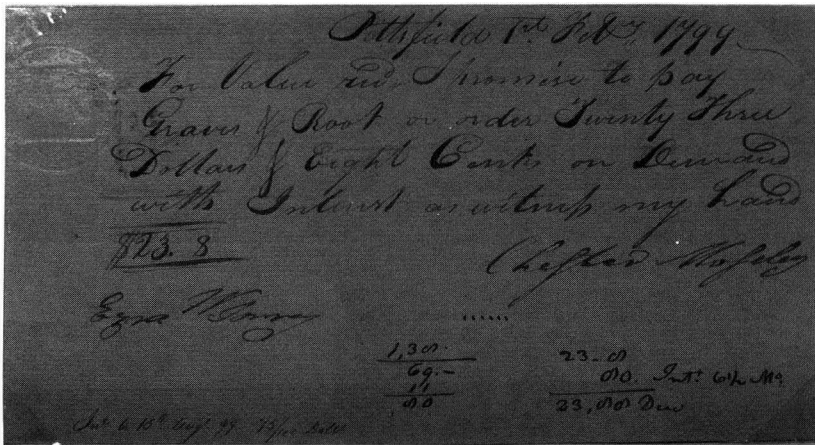 Pittsfield 1st Feby 1799
For Value recd I promise to pay
Graves & Root or order Twenty Three
Dollars & Eight Cents on Demand
with Interest as witness my hand
$23.8
Chester Moseley
Ezra
1,38.
69.-
11
80
23-8
80 Intt 6½ Mo
23,88 Due
Int to 15th Augt 99